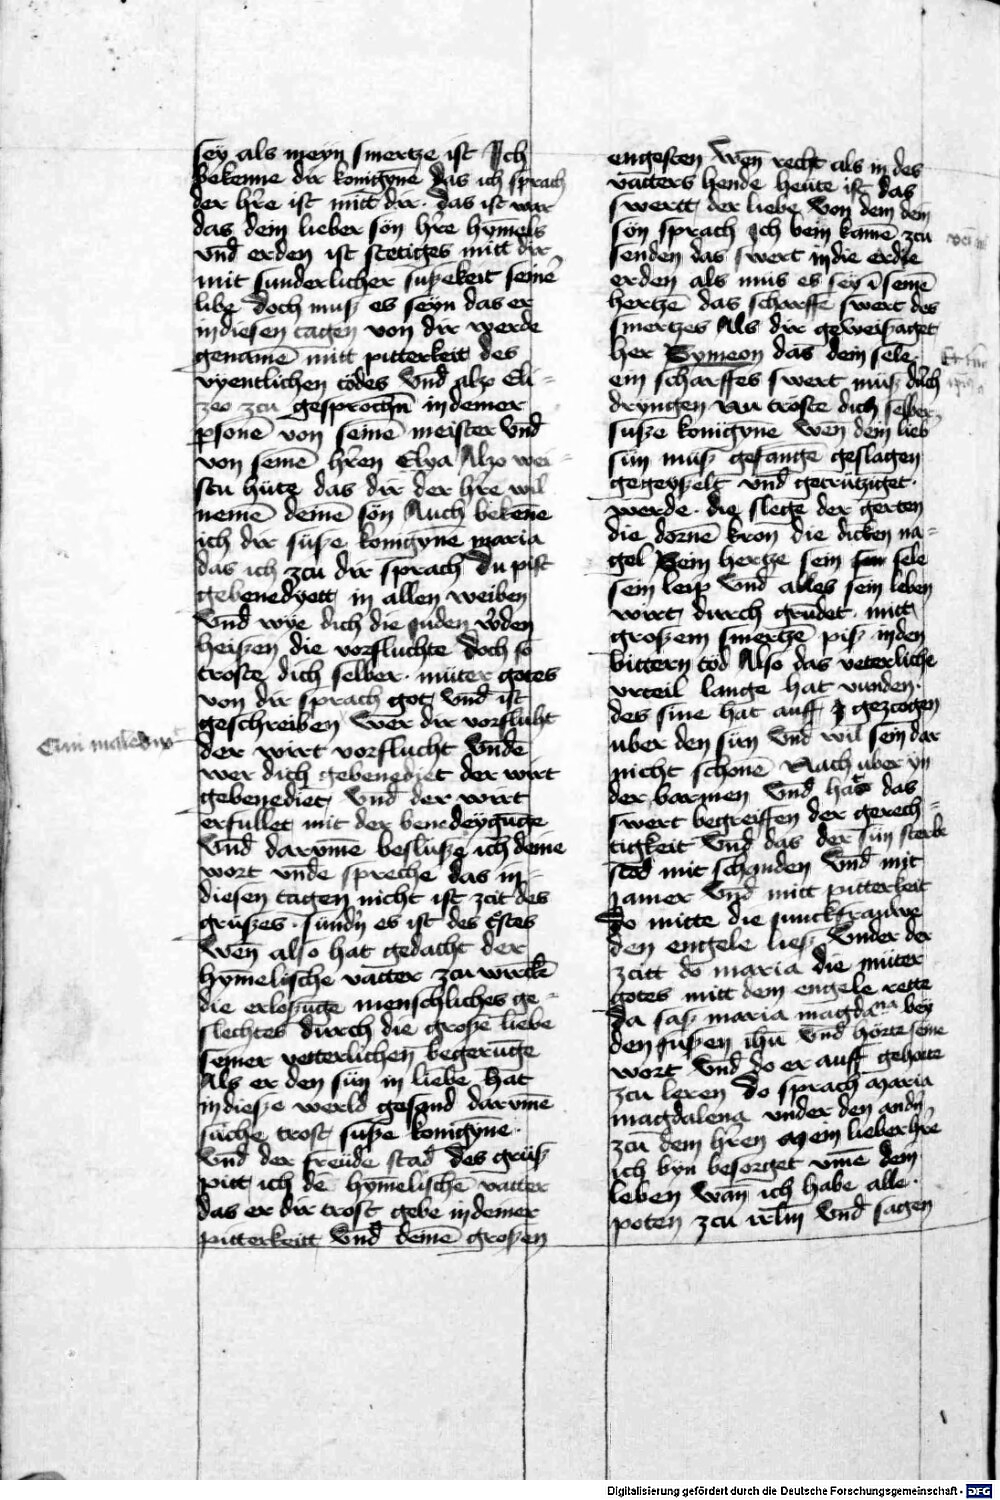 sey als meyn smertze ist Ich
bekenne dir konigyne das ich sprach
der hr̄e ist mitt dir · das ist war
das dein lieber son hr̄e hymels
vnd̄ erden ist stetiges mitt dir
mit sunderlicher sußekeit seinē
libe doch muß es seyn das er
in diesen tagen von dir werde
genamē mitt pitterkeit des
vyentlichen todes Vnd̄ alzo Eli-
zeo zcu gesprochn̄ in deiner
psonē von seinē meister Vnd̄
von seinē hr̄en Elya Alzo wei-
stu hüte das dir der hr̄e wil
nemē deinē son Auch bekēne
ich dir süße konigyne maria
das ich zcu dir sprach Du pist
gebenedyett in allen weiben
Vnd̄ wye dich die juden wd̄en
heißen die vorfluchte doch so
troste dich selber · müter gotes
von dir sprach got Vnd̄ ist
geschreiben Wer dir vorflucht
der wirt vorflucht Vndē
wer dich gebenediet der wirt
gebenediet Vnd̄ der wirt
erfullet mit der benedeyguge
Vnd̄ darvme besluße ich deine
wort vnde spreche das in
diesen tagen nicht ist zcit des
grußes · sund̄n es ist des
Wen̄ also hat gedacht der
hymelische vatter zcu wircken
die erloßuge menschliches ge-
slechtes durch die große liebe
seiner veiterlichen begeruge
Als er den sün in liebe hat
in diesze werld gesand darvmē
suche trost suße konigyne ·
Vnd̄ der freude stad des gruß
pitt ich dē hymelischē vatter
das er dir trost gebe in deiner
pitterkeitt Vnd̄ deinē großen
Cum maledix
engesten Wen̄ recht als in des
vatters hende heute ist das
swertt der liebe Von dem dein
son sprach Ich bein kamē zcu
senden das swert in die erdze
erden als mus es sey ī seinē
hertzē das scharffe swert des
smertzes Als dir geweißaget
her Symeon das dein sele
ein scharffes swert müß durch
dryngen Nu troste dich selber
suße konigyne Wen dein lieb
sün muß gefangē geslagen
gegeyselt vnd̄ gecrutziget ·
werde · die slege der gerten
die dornē kron die dicken na-
gel Sein hertze sein sele
sein leip Vnd̄ alles sein leben
wirt durch grudet · mitt
großem smertzē piß in den
bittern tod Also das veterliche
vrteil lange hat vunden
des sine hat auff gezcogen
uber den sün Vnd̄ wil sein dar
nicht schonē Nach uber yn
der barmen Vnd̄ hat das
swert begreiffen der gerech-
tigkeit Vnd̄ das der sün sterbe
mit schanden Vnd̄ mit
jamer Vnd̄ mitt pitterkeit
Do mitte die junckfrauwe
den engele ließ Vnder der
zcitt do maria die müter
gotes mitt dem engele rette
Da saß maria magdaⁿᵃ bey
den fußen ihū Vnd̄ hortt seine
wort Vnd̄ do er auff gehorte
zcu leren Do sprach Maria
magdalena vnder den andn̄
zcu dem hr̄en Mein lieber hr̄e
ich byn besorget vmē dein
leben wan̄ ich habe alle
poten zcu irlm̄ Vnd̄ sagen